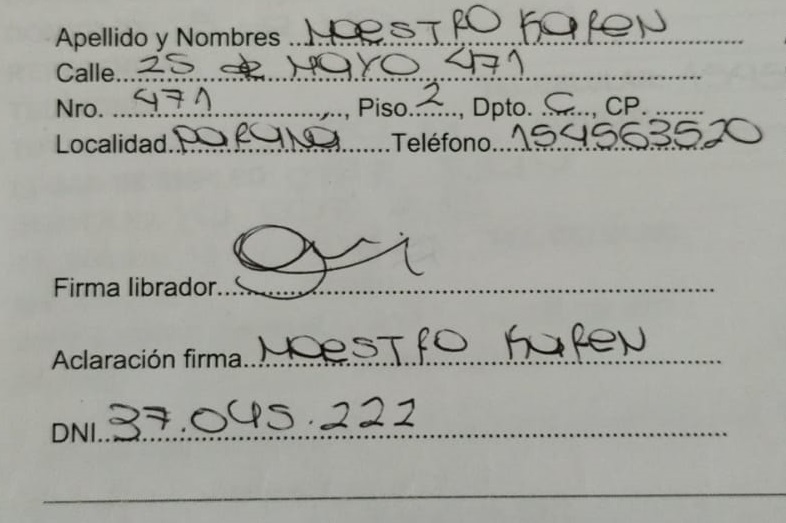 Apellido y Nombres MAESTRO KAREN
Calle 25 de MAYO 471
Nro. 471, Piso 2, Dpto. C, CP.
Localidad PARANÁ Teléfono 154563520
Firma librador
Aclaración firma MAESTRO KAREN
DNI 37.045.222